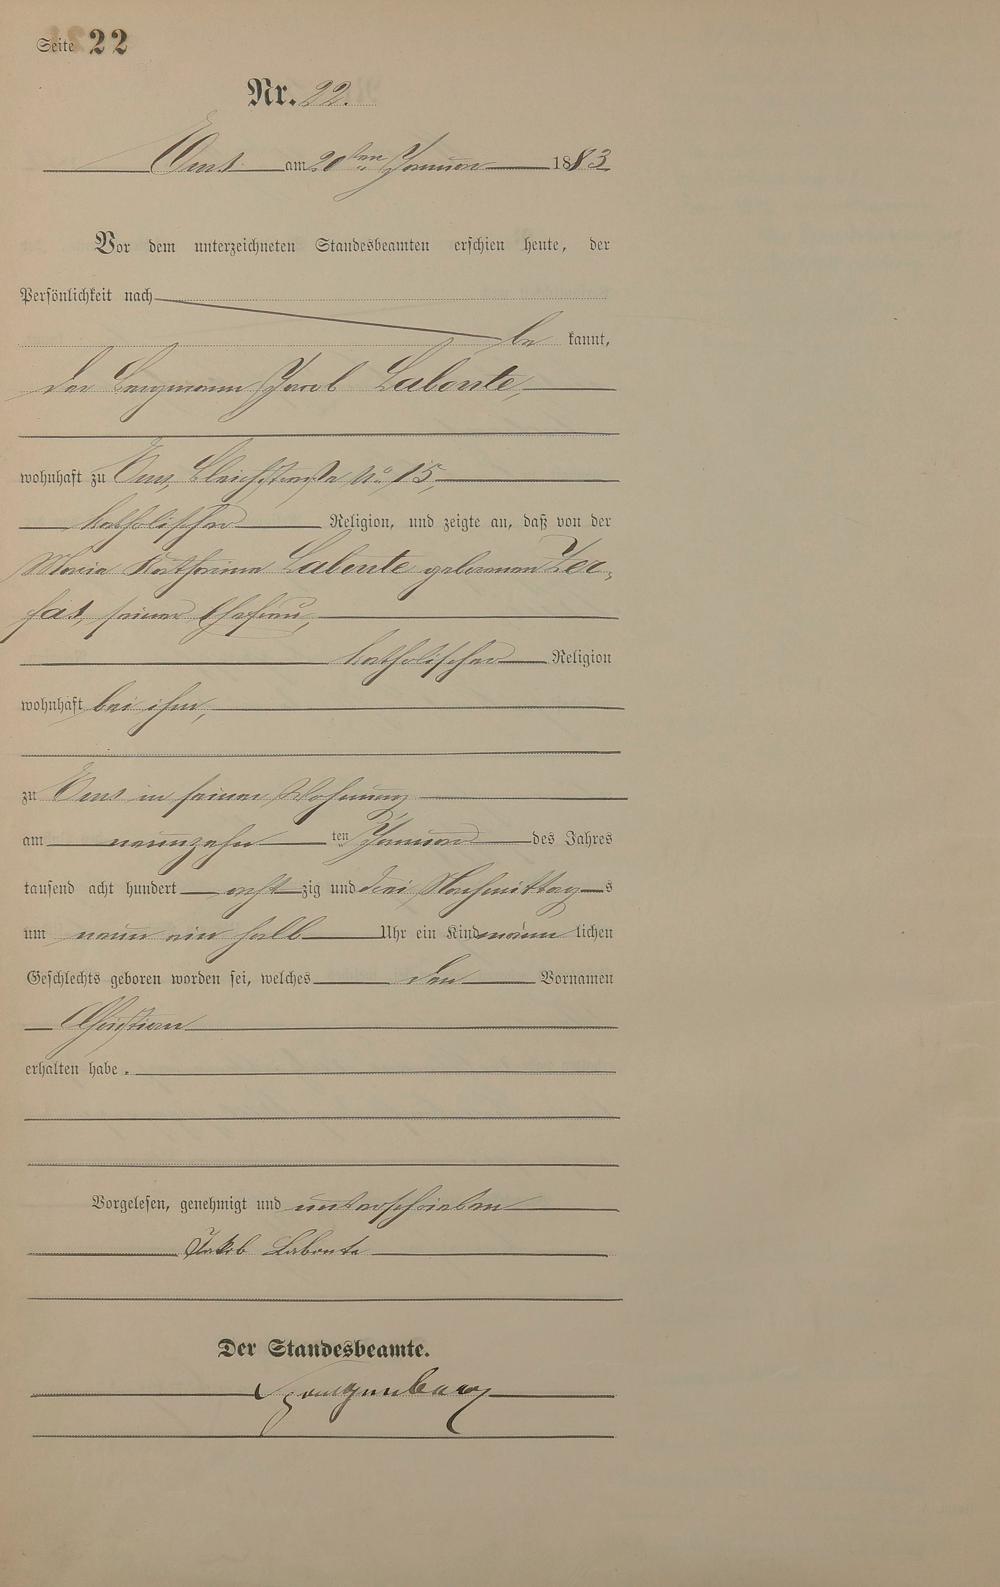 Seite 22
Nr. 22.
Ems am 20ten Januar 1883
Vor dem unterzeichneten Standesbeamten erschien heute, der
Persönlichkeit nach
be kannt,
der Bergmann Jacob Labonte,
wohnhaft zu Ems, Bleichstraße No 15,
katholischer Religion, und zeigte an, daß von der
Maria Katharina Labonte geborenen Zer-
fas, seiner Ehefrau,
katholischer Religion
wohnhaft bei ihm,
zu Ems in seiner Wohnung
am neunzehn ten Januar des Jahres
tausend acht hundert acht zig und drei Nachmittag s
um neun ein halb Uhr ein Kind männ lichen
Geschlechts geboren worden sei, welches den Vornamen
Christian
erhalten habe.
Vorgelesen, genehmigt und unterschrieben
Jakob Labonte
Der Standesbeamte.